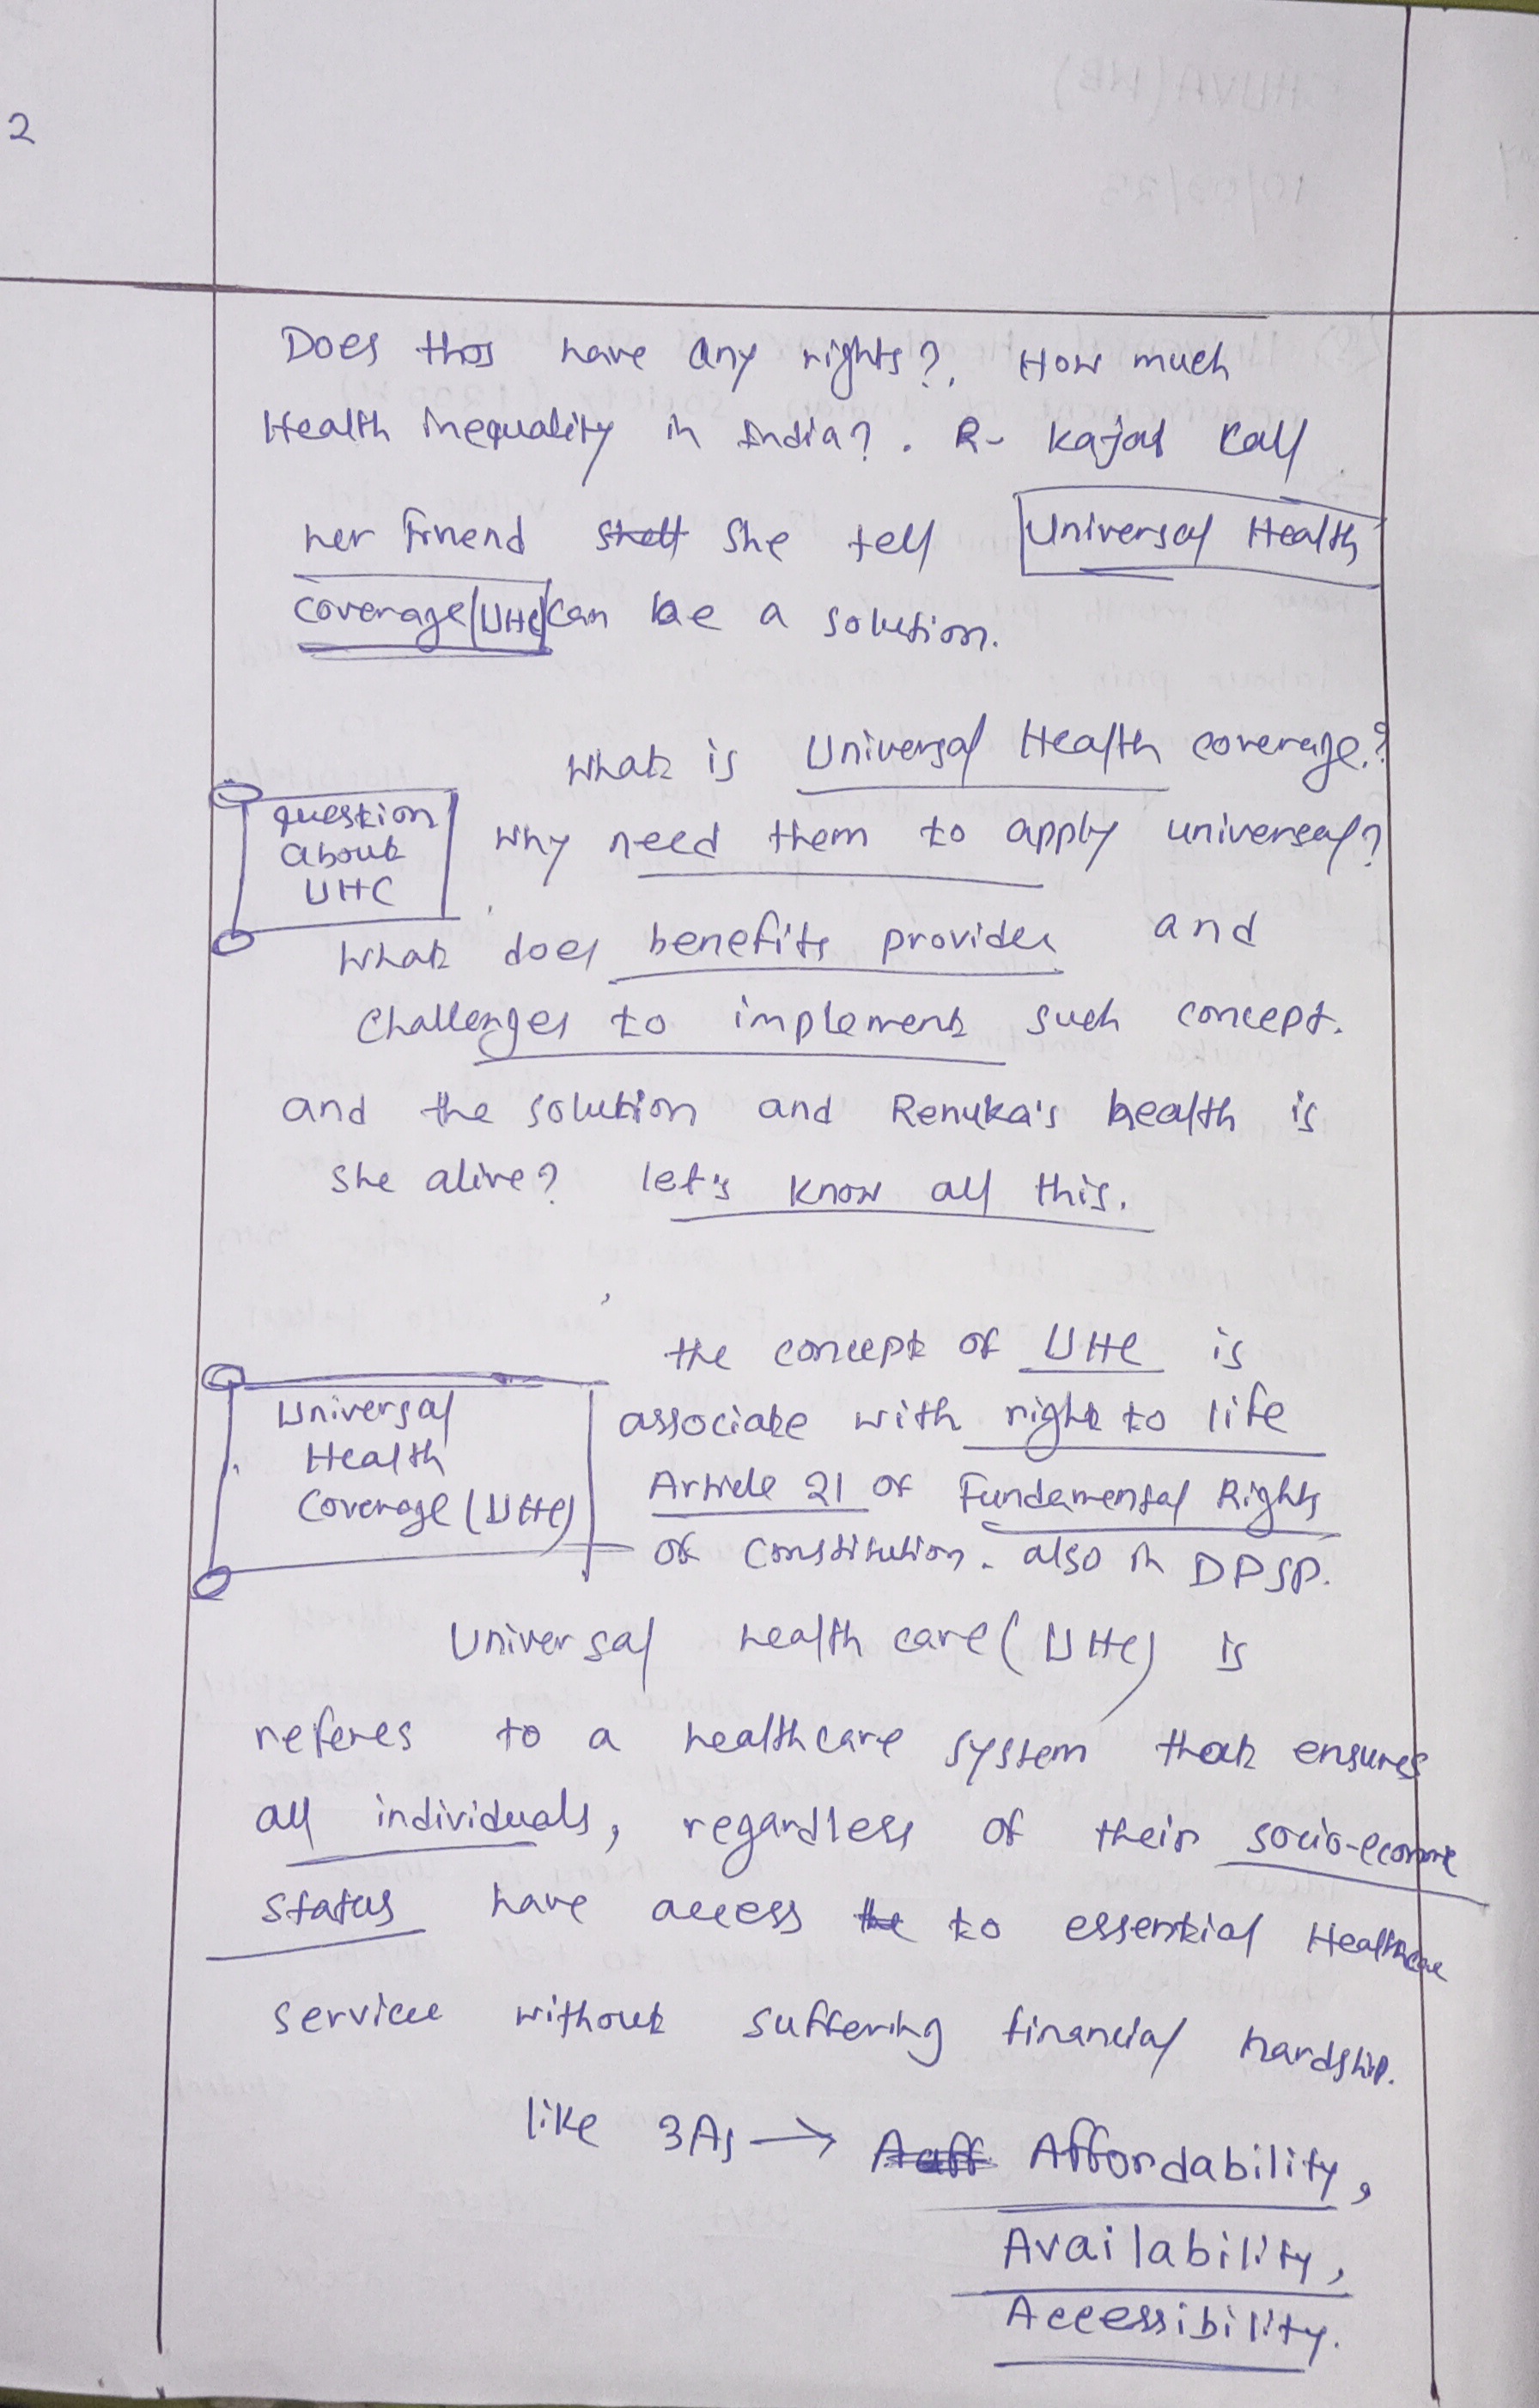 2
Does this have any rights?. How much
Health inequality in India?. R- Kajal Call
her friend She tell Universal Health
Coverage (UHC) can be a solution.
What is Universal Health coverage.?
question
about
UHC
why need them to apply universal?
What does benefits provides and
Challenges to implement such concept.
and the solution and Renuka's health is
she alive? let's know all this.
the concept of UHC is
Universal
Health
Coverage (UHC)
associate with right to life
Article 21 of Fundamental Rights
of Constitution. also in DPSP.
Universal health care (UHC) is
referes to a healthcare system that ensures
all individuals, regardless of their socio-econome
status have access to essential Healthcare
services without suffering financial hardship.
like 3As → Affordability,
Availability,
Accessibility.